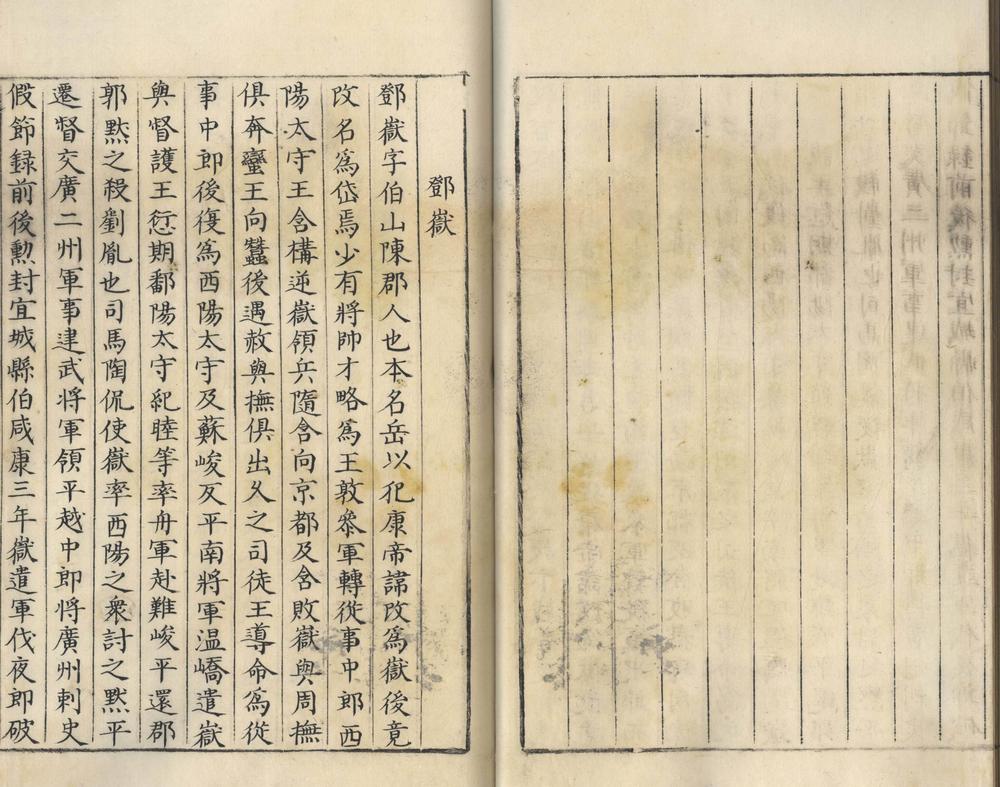 鄧嶽
鄧嶽字伯山陳郡人也本名岳以犯康帝諱改爲嶽後竟
改名爲岱焉少有將帥才略爲王敦叅軍轉從事中郎西
陽太守王含構逆嶽領兵隨含向京都及含敗嶽與周撫
俱奔蠻王向蠶後遇赦與撫俱出久之司徒王導命爲從
事中郎後復爲西陽太守及蘇峻反平南將軍温嶠遣嶽
與督護王愆期鄱陽太守紀睦等率舟軍赴難峻平還郡
郭黙之殺劉胤也司馬陶侃使嶽率西陽之衆討之黙平
遷督交廣二州軍事建武將軍領平越中郎將廣州刺史
假節録前後勲封宜城縣伯咸康三年嶽遣軍伐夜郎破